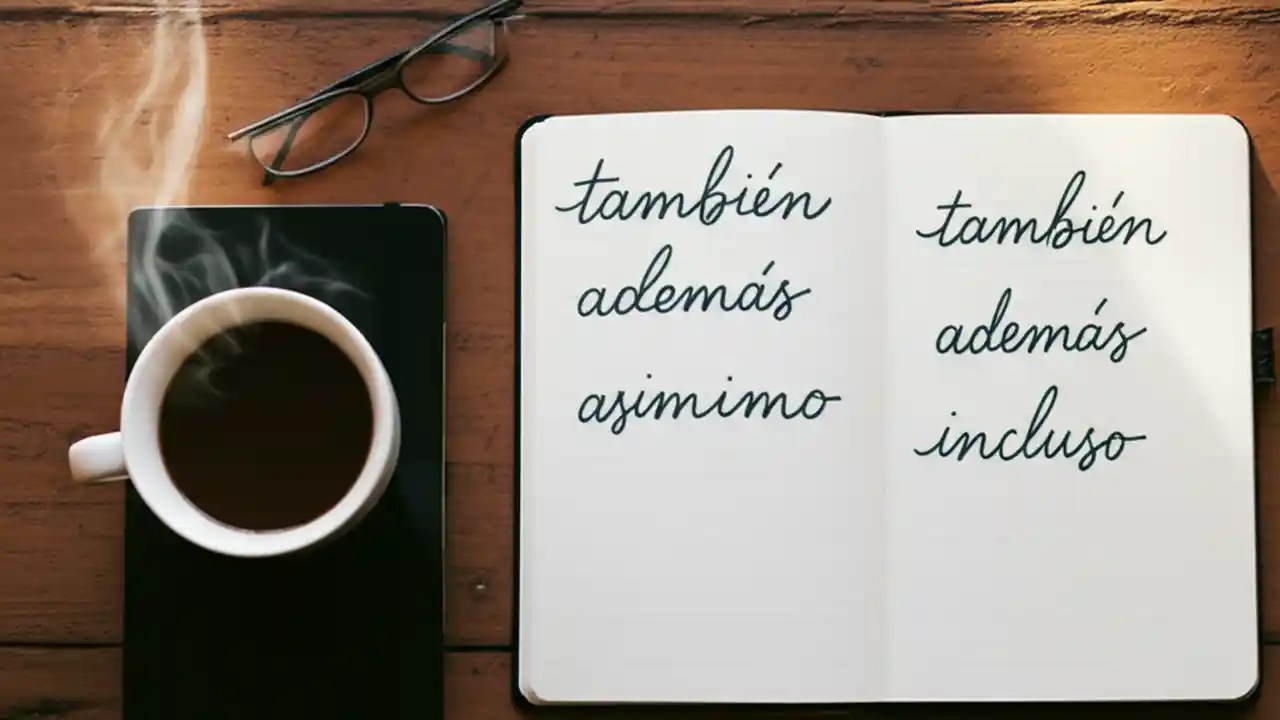 también
además
asimimo
también
además
incluso